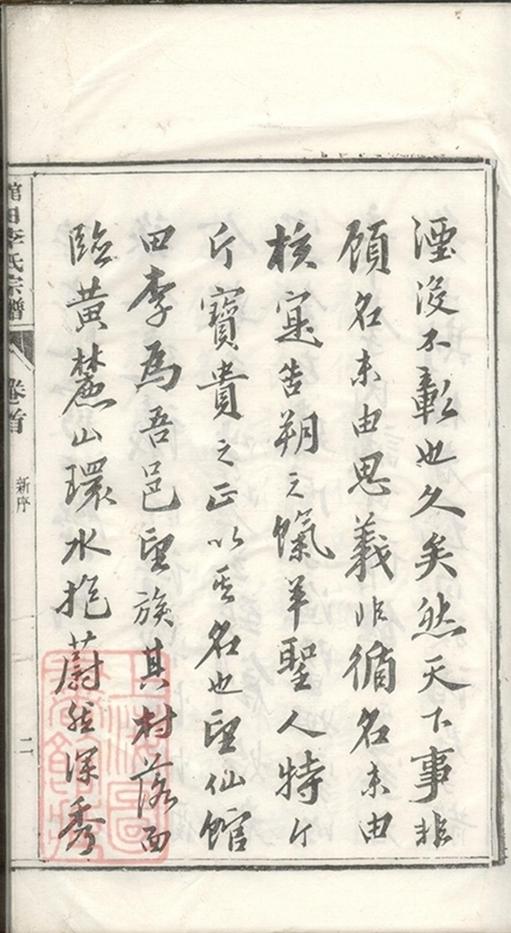 湮没不彰也久矣然天下事非
顧名末由思義非循名末由
核寔告朔之餼羊聖人特斤
斤寶貴之正以其名也望仙館
田李為吾邑望族其村落面
臨黃麓山環水抱蔚然深秀
館田李氏宗譜
卷首
新序
二
上海圖
書館藏